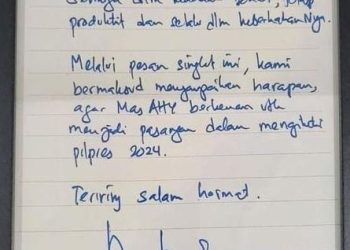 produktif dan selalu dlm keberkahanNya.
Melalui pesan singkat ini, kami
bermaksud menyampaikan harapan,
agar Mas AHY berkenan utk
menjadi pasangan dalam mengikuti
pilpres 2024.
Teriring salam hormat.